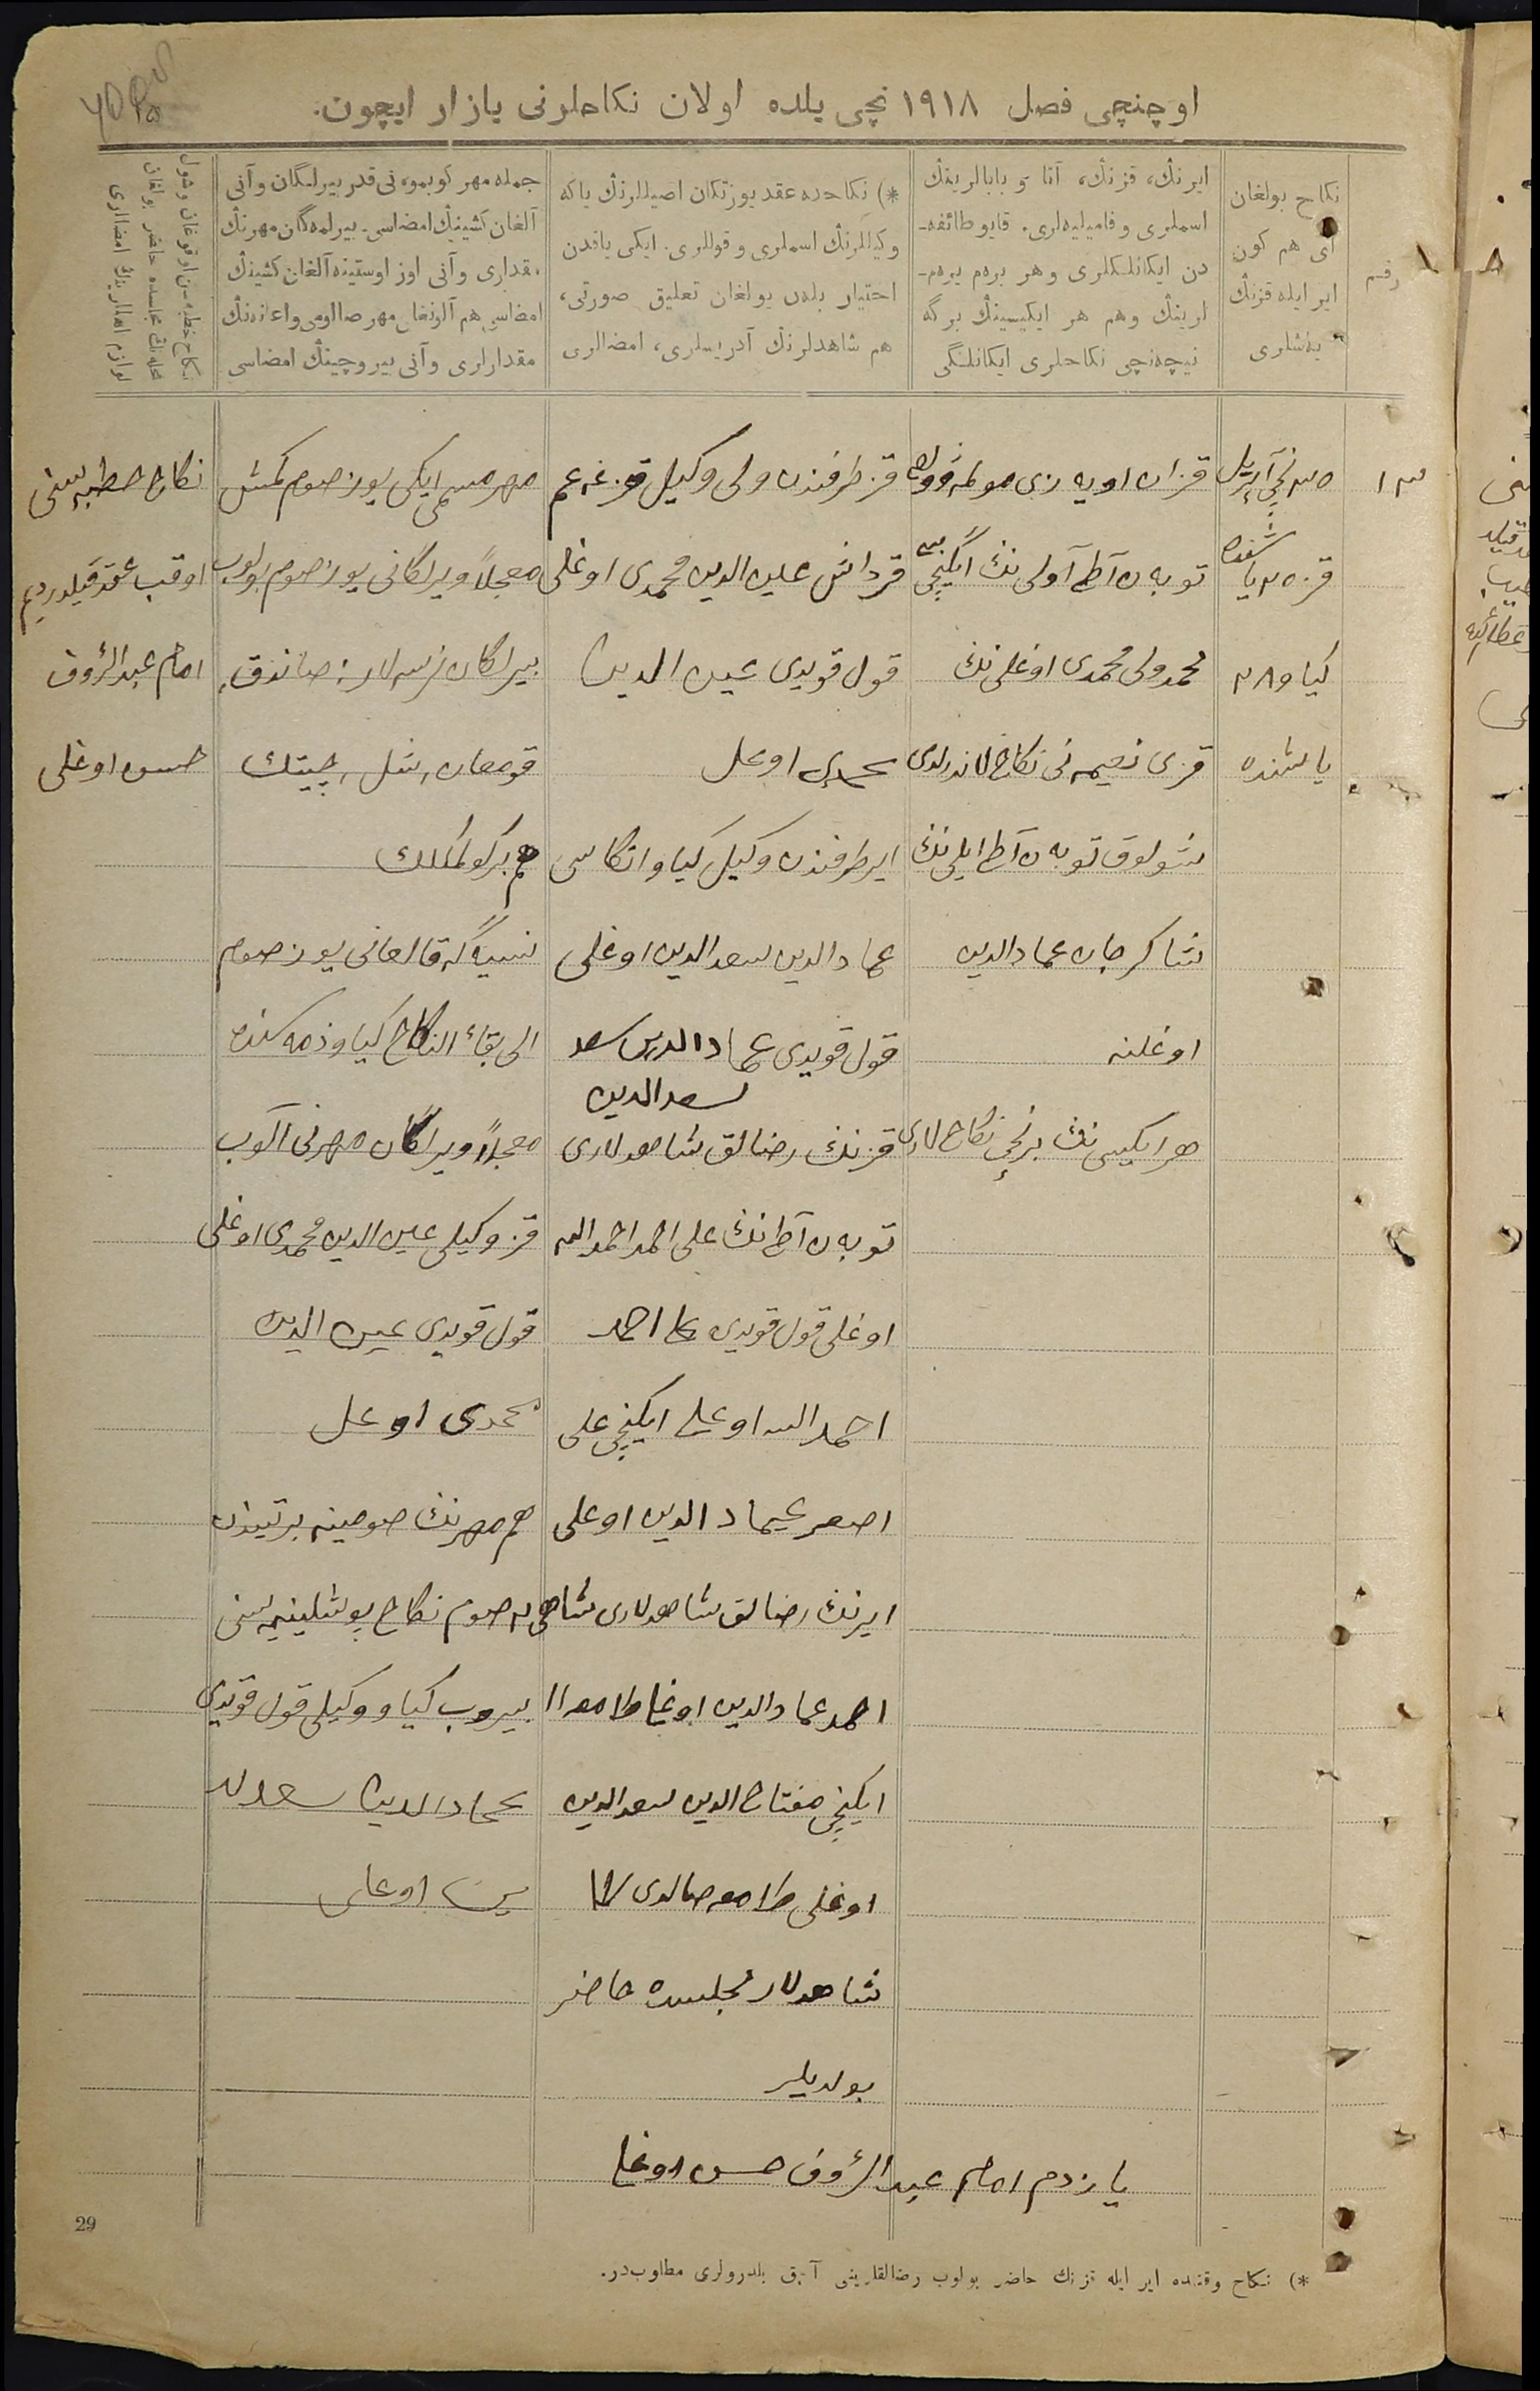 اوچنچی فصل ۱۹۱۸ نچی یلده اولان نکاحلرنی یازار ایچون.
رقم
نکاح بولغان
آی هم کون
ایر ایله قزنڭ
یاشلری
ایرنڭ، قزنڭ، آتا و بابالرینڭ
اسملری و فامیلیه‌لری. قایو طائفه‌
دن ایکانلکلری و هر برم یرم‌
لرینڭ وهم هر ایکیسینڭ برگه
نیچه‌نچی نکاحلری ایکانلگی
*) نکاحده عقد یوزتکان اصیللرنڭ یاکه
وکیللرنڭ اسملری و قوللری. ایکی یاقدن
احتیار بله‌ن بولغان تعلیق صورتی،
هم شاهدلرنڭ آدریسلری، امضالری
جمله مهر کوبمو، نی قدر بیرلگان وآنی
آلغان کشینڭ امضاسی. بیرلمه‌گان مهرنڭ
مقداری و آنی اوز اوستینه آلغان کشینڭ
امضاسی هم آلونغان مهر صاالومی واعانه‌نڭ
مقدارلری و آنی بیروچینڭ امضاسی
نکاح خطبه‌سن اوقوغان وشول
مجلسده حاضر بولغان
امضالری
۱۳
۲۵ نچی آپریل
قز ۲۵ یا شنده
کیاو ۲۸
یاشنده
قزان اویه‌زی
توبه‌ن آطی آولی نڭ ایگنچی
محمدولی محمدی اوغلی نڭ
قزی نعیمه نی نکاحلاندرلدی
شولوق توبه‌ن آطی ایلی نڭ
شاکرجان عمادالدین
اوغلنه
هر ایکیسی نڭ برنچی نکاحلاری
قز طرفندن ولی وکیل قزغه عم
قرداش عین الدین محمدی اوغلی
قول قویدی عین الدین
محمدی اوغلی
ایر طرفندن وکیل کیاو اتکاسی
عمادالدین سعدالدین اوغلی
قول قویدی عمادالدین سعد
سعدالدین
قزنڭ رضالق شاهدلاری
توبه‌ن آطی نڭ علی احمد احمدالله
اوغلی قول قویدی علی احمد
احمدالله اوغلی ایکنچی علی
اصغر عیمادالدین اوغلی
ایرنڭ رضالق شاهدلاری
احمد عمادالدین اوغلی
ایکنچی مفتاح الدین سعدالدین
اوغلی طامغه صالدی
شاهدلار مجلسده حاضر
بولدیلر
مهر مسمی ایکی یوز صوم کمش
معجلاً ویرلگانی یوز صوم بولوب
بیرلگان نرسه‌لار: صاندق،
قومغان، شل، چیتك
هم بر کولمکلك
نسیه‌گه قالغانی یوز صوم
الی بقاء النکاح کیاو ذمه‌سنده
معجلاً ویرلگان مهرنی آلوب
قز وکیلی عین الدین محمدی اوغلی
قول قویدی عین الدین
محمدی اوغلی
هم مهرنڭ صومینه بر تیندن
۲ صوم نکاح پوشلینه‌سنی
بیروب کیاو وکیلی قول قویدی
عمادالدین سعدالد
ین اوغلی
نکاح خطبه‌سنی
اوقب عقد قیلدردیم
امام عبدالرؤف
حسن اوغلی
یازدم امام عبدالرؤف حسن اوغلی
29
*) نکاح وقتنده ایر ایله قزنڭ حاضر بولوب رضالقلرینی آچق بلدرولری مطلوب‌در.